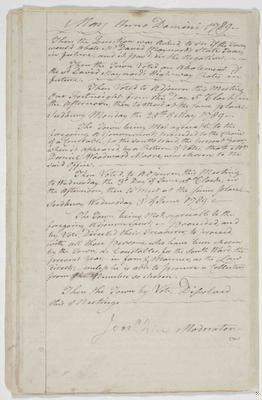 May Anno Domini 1789
Then the Question was asked to see if the Town
would abate Mr David Haynes's State Taxes
in future, and it past in the Negative
Then the Town Voted an abatement of
Mr David Haynes's Highway Rates in
future.
Then Voted to adjourn this Meeting
for fortnight from this Day at Clock in
the Afternoon then to meet at the same place
Sudbury Monday the 25th of May 1789
The Town being Met agreeable to the
foregoing Adjournment proceeded to the choice
of a Constable, for the South ward the present year
when it appeared by a Return of Votes that Mr
Daniel Woodward Moore was chosen to the
said Office.
Then Voted to Adjourn this Meeting
to Wednesday the 3d Day of June at Clock in
the Afternoon, then to meet at the same place
Sudbury Wednesday 3d of June 1789
The Town being Met agreeable to the
foregoing Adjournment Proceeded and
by Vote Directed their Treasurer to proceed
with all those Persons who have been chosen
by the Town as Constables for the South Ward the
present year in form & Manner as the Law
directs, unless he is able to procure a Collector
from the Number so chosen.
Then the Town by Vote Dissolved
this Meeting
Moderator